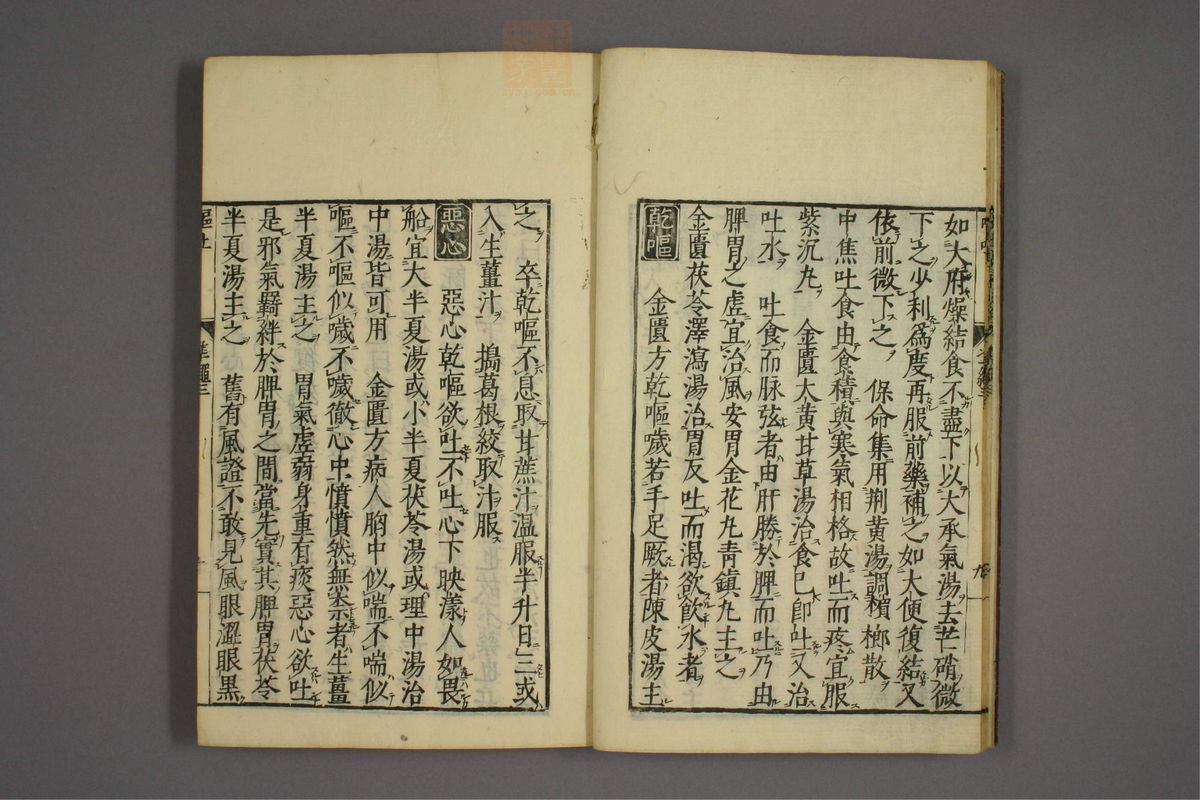 如大府燥結食不盡下以大承氣湯去芒硝微
下之少利爲度再服前藥補之如大便復結又
依前微下之　保命集用荆黄湯調檳榔散
中焦吐食由食積與寒氣相格故吐而疼宜服
紫沉丸　金匱大黄甘草湯治食已卽吐又治
吐水　吐食而脉弦者由肝勝於脾而吐乃由
脾胃之虚宜治風安胃金花丸靑鎮丸主之
金匱茯苓澤瀉湯治胃反吐而渴欲飲水者
乾嘔　金匱方乾嘔噦若手足厥者陳皮湯主
之　卒乾嘔不息取甘蔗汁温服半升日三或
入生薑汁　搗葛根絞取汁服
惡心　惡心乾嘔欲吐不吐心下映漾人如畏
船宜大半夏湯或小半夏茯苓湯或理中湯治
中湯皆可用　金匱方病人胸中似喘不喘似
嘔不嘔似噦不噦徹心中憒憒然無柰者生薑
半夏湯主之　胃氣虚弱身重有痰惡心欲吐
是邪氣羈絆於脾胃之間當先實其脾胃茯苓
半夏湯主之　舊有風證不敢見風眼澀眼黒
嘔吐
準繩三